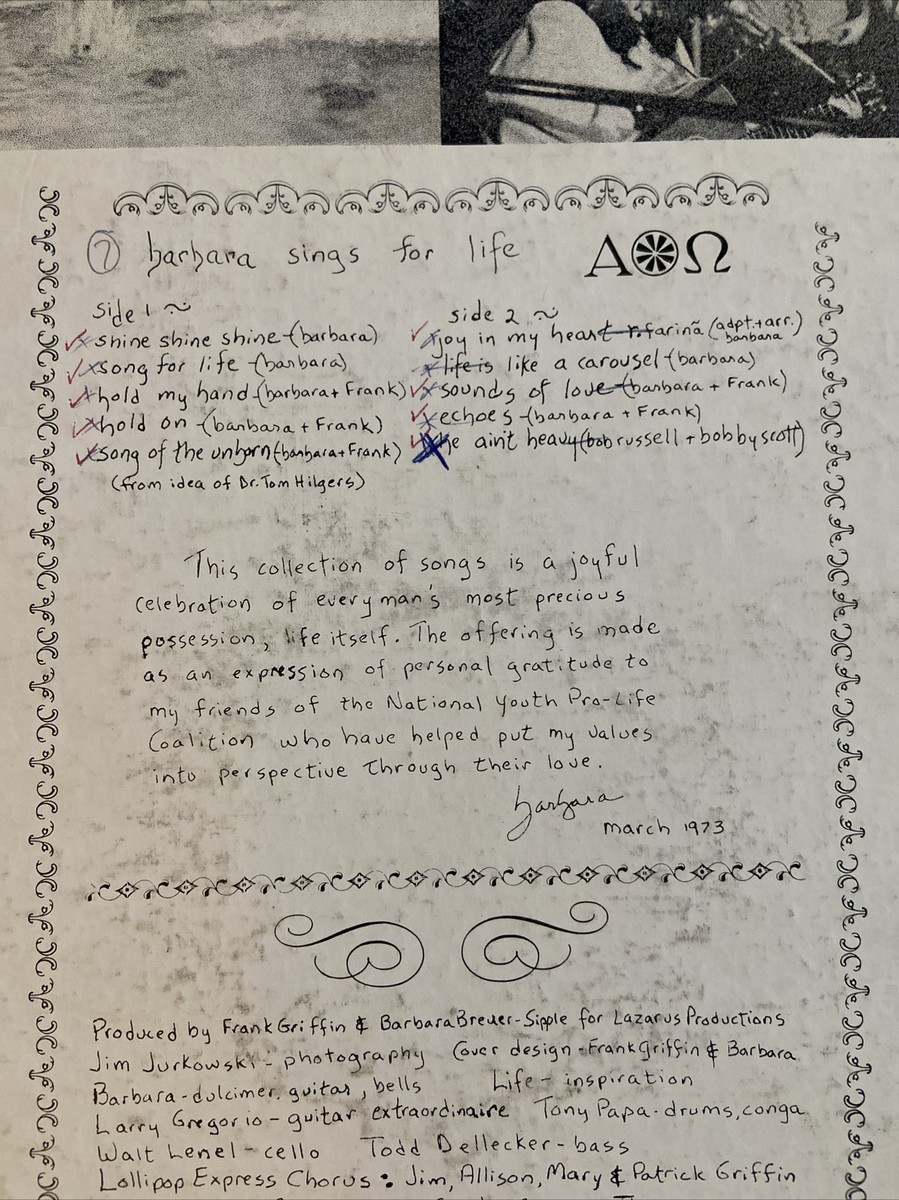 7 barbara sings for life ΑΩ
side 1 ~
shine shine shine - (barbara)
song for life - (barbara)
hold my hand - (barbara + Frank)
hold on - (barbara + Frank)
song of the unborn (barbara + Frank)
(from idea of Dr. Tom Hilgers)
side 2 ~
joy in my heart - r. farina (adpt. + arr.) barbara
life is like a carousel - (barbara)
sounds of love - (barbara + Frank)
echoes - (barbara + Frank)
he ain't heavy (bob russell + bobby scott)
This collection of songs is a joyful
celebration of every man's most precious
possession, life itself. The offering is made
as an expression of personal gratitude to
my friends of the National Youth Pro-Life
Coalition who have helped put my values
into perspective through their love.
barbara
march 1973
Produced by Frank Griffin & Barbara Breuer-Sipple for Lazarus Productions
Jim Jurkowski - photography Cover design - Frank Griffin & Barbara
Barbara - dulcimer, guitar, bells Life - inspiration
Larry Gregorio - guitar extraordinaire Tony Papa - drums, conga
Walt Lenel - cello Todd Dellecker - bass
Lollipop Express Chorus : Jim, Allison, Mary & Patrick Griffin